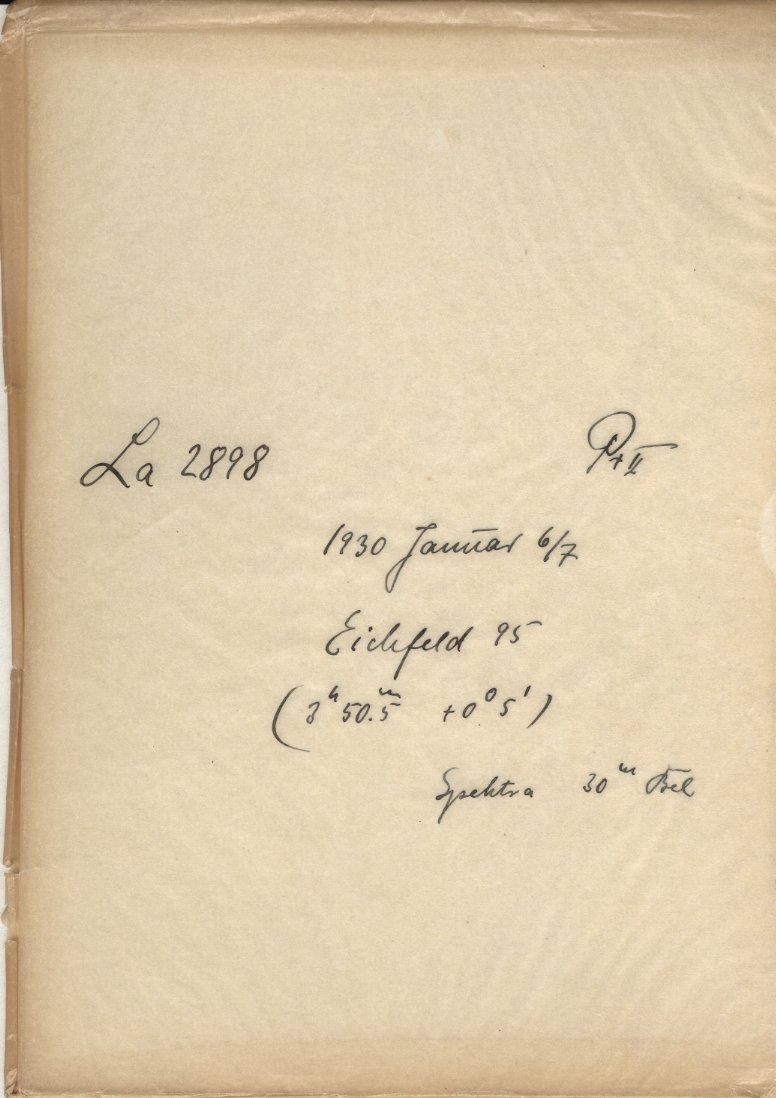 La 2898 Pr II
1930 Januar 6/7
Eichfeld 95
(3ʰ 50.5ᵐ +0° 5')
Spektra 30ᵐ Bel